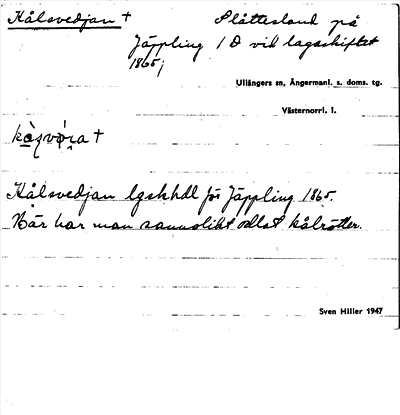 Kålsvedjan + Slåttesland på
Jäppling 1 D vid lagaskiftet
1865;
Ullångers sn, Ångermanl. s. doms. tg.
Västernorrl. l.
Kålsvedjan lgskhdl för Jäppling 1865.
Här har man sannolikt odlat kålrötter.
Sven Hiller 1947